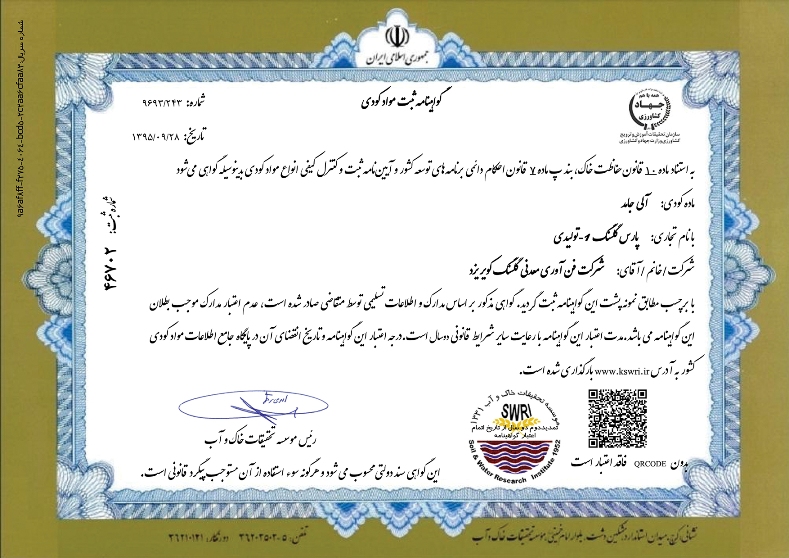 جمهوری اسلامی ایران
همه با هم
جهاد
کشاورزی
سازمان تحقیقات آموزش و ترویج
کشاورزی وزارت جهاد کشاورزی
گواهینامه ثبت مواد کودی
شماره: ۹۶۹۳/۲۴۳
تاریخ: ۱۳۹۵/۰۹/۲۸
به استناد ماده ۱۰ قانون حفاظت خاک، بند پ ماده ۷ قانون احکام دائمی برنامه های توسعه کشور و آیین نامه ثبت و کنترل کیفی انواع مواد کودی بدینوسیله گواهی می شود
ماده کودی: آلی جامد
با نام تجاری: پارس گلسنگ ۱-تولیدی
شرکت/خانم/آقای: شرکت فن آوری معدنی گلسنگ کویر یزد
با برچسب مطابق نمونه پشت این گواهینامه ثبت گردید. گواهی مذکور بر اساس مدارک و اطلاعات تسلیمی توسط متقاضی صادر شده است، عدم اعتبار مدارک موجب بطلان
این گواهینامه می باشد. مدت اعتبار این گواهینامه با رعایت سایر شرایط قانونی دو سال است. درجه اعتبار این گواهینامه و تاریخ انقضای آن در پایگاه جامع اطلاعات مواد کودی
کشور به آدرس www.kswri.ir بارگذاری شده است.
شماره ثبت: ۴۶۷۰۲
رئیس موسسه تحقیقات خاک و آب
موسسه تحقیقات خاک و آب ۱۳۳۱
SWRI
تمدید دوم دو سال از تاریخ اتمام
اعتبار گواهینامه
Soil & Water Research Institute 1952
بدون QRCODE فاقد اعتبار است
این گواهی سند دولتی محسوب می شود و هرگونه سوء استفاده از آن مستوجب پیگرد قانونی است.
نشانی: کرج، میدان استاندارد، مشکین دشت، بلوار امام خمینی، موسسه تحقیقات خاک و آب
تلفن: ۵-۳۶۲۰۲۵۰۲ دورنگار: ۳۶۲۱۰۱۲۱